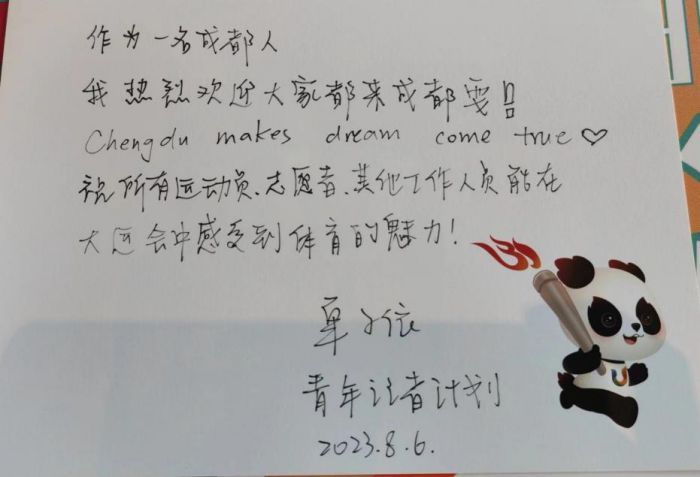 作为一名成都人
我热烈欢迎大家都来成都耍!!
Chengdu makes dream come true♡
祝所有运动员、志愿者、其他工作人员能在
大运会中感受到体育的魅力!
依
青年记者计划
2023.8.6.